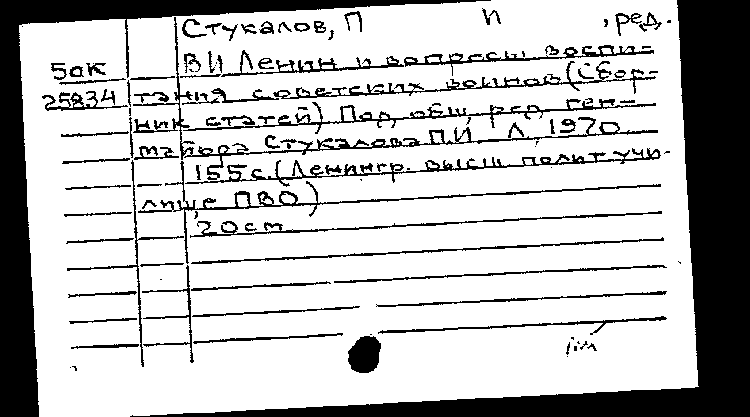 Стукалов, П И , ред.
5ОК ВИ Ленин и вопросы воспи-
25834 тания советских воинов (Сбор-
ник статей) Под общ. ред. ген-
майора Стукалова П.И. Л, 1970
155 с. (Ленингр. высш полит учи-
лище ПВО)
20 cm